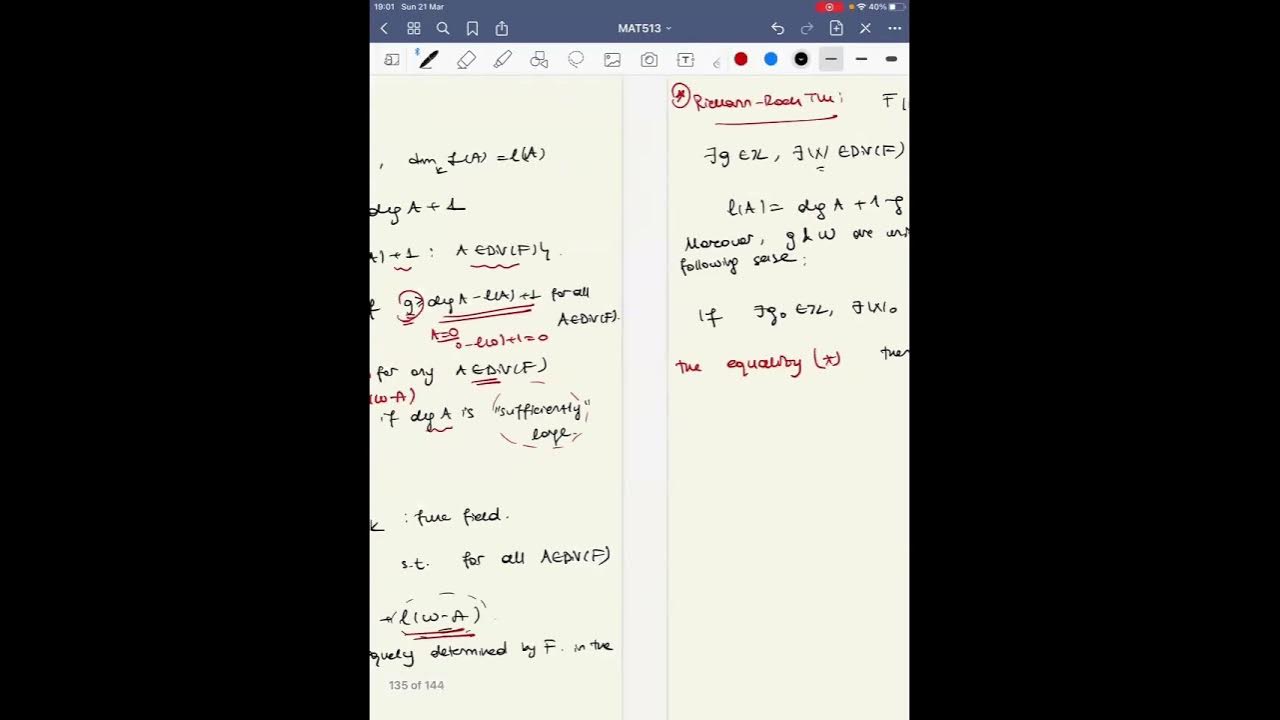 19:01 Sun 21 Mar
40%
MAT513
, dim L(A) = l(A)
K
deg A + 1
A) + 1 : A ∈ Div(F)}.
if g ≥ deg A - l(A) + 1 for all
A ∈ Div(F).
A=0
0 - l(0) + 1 = 0
for any A ∈ Div(F)
(W-A)
if deg A is "sufficiently
large"
K : func field.
s.t. for all A ∈ Div(F)
+ l(W-A)
quely determined by F. in the
135 of 144
* Riemann-Roch Thm: F
∃g ∈ ℤ, ∃W ∈ Div(F)
l(A) = deg A + 1 - g
Moreover, g & W are uni
following sense:
If ∃g₀ ∈ ℤ, ∃W₀
the equality (*) then